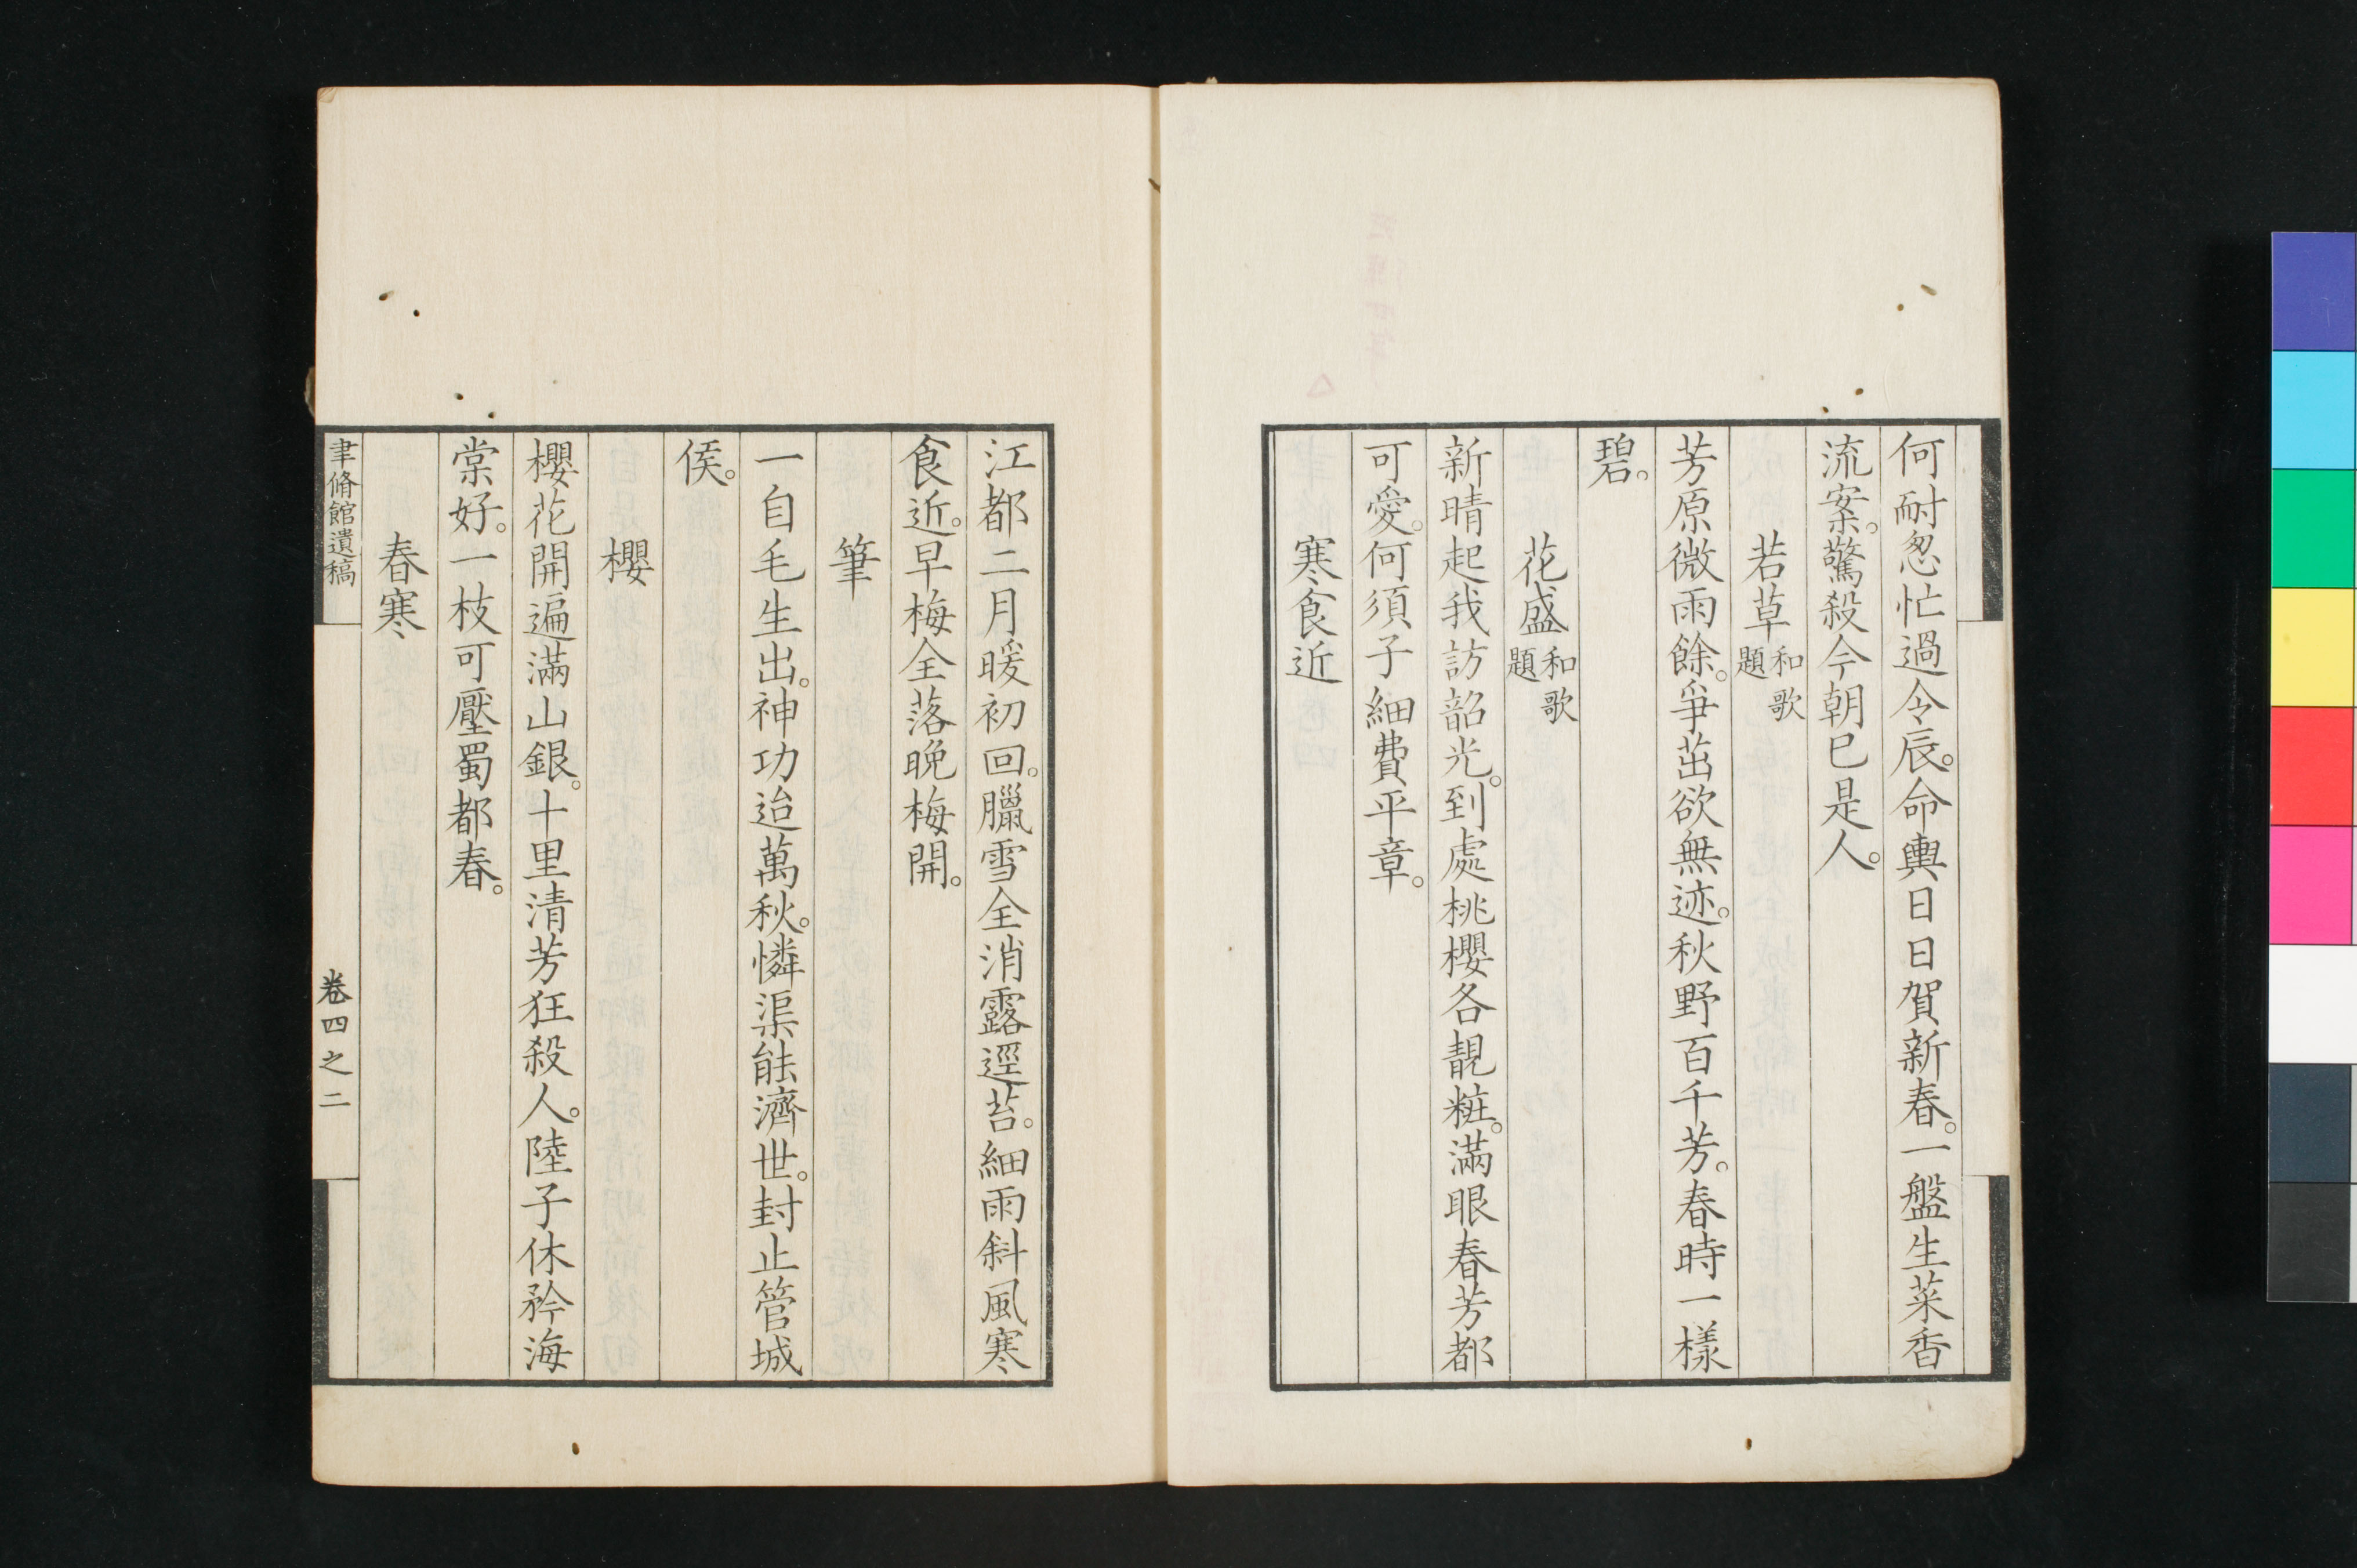 何耐怱忙過令辰。命輿日日賀新春。一盤生菜香
流案。驚殺今朝巳是人。
若草和歌題
芳原微雨餘。爭茁欲無迹。秋野百千芳。春時一樣
碧。
花盛和歌題
新晴起我訪韶光。到處桃櫻各靚粧。滿眼春芳都
可愛。何須子細費平章。
寒食近
江都二月暖初回。臘雪全消露逕苔。細雨斜風寒
食近。早梅全落晚梅開。
筆
一自毛生出。神功迨萬秋。憐渠能濟世。封止管城
侯。
櫻
櫻花開遍滿山銀。十里清芳狂殺人。陸子休矜海
棠好。一枝可壓蜀都春。
春寒
聿脩館遺稿
卷四之二